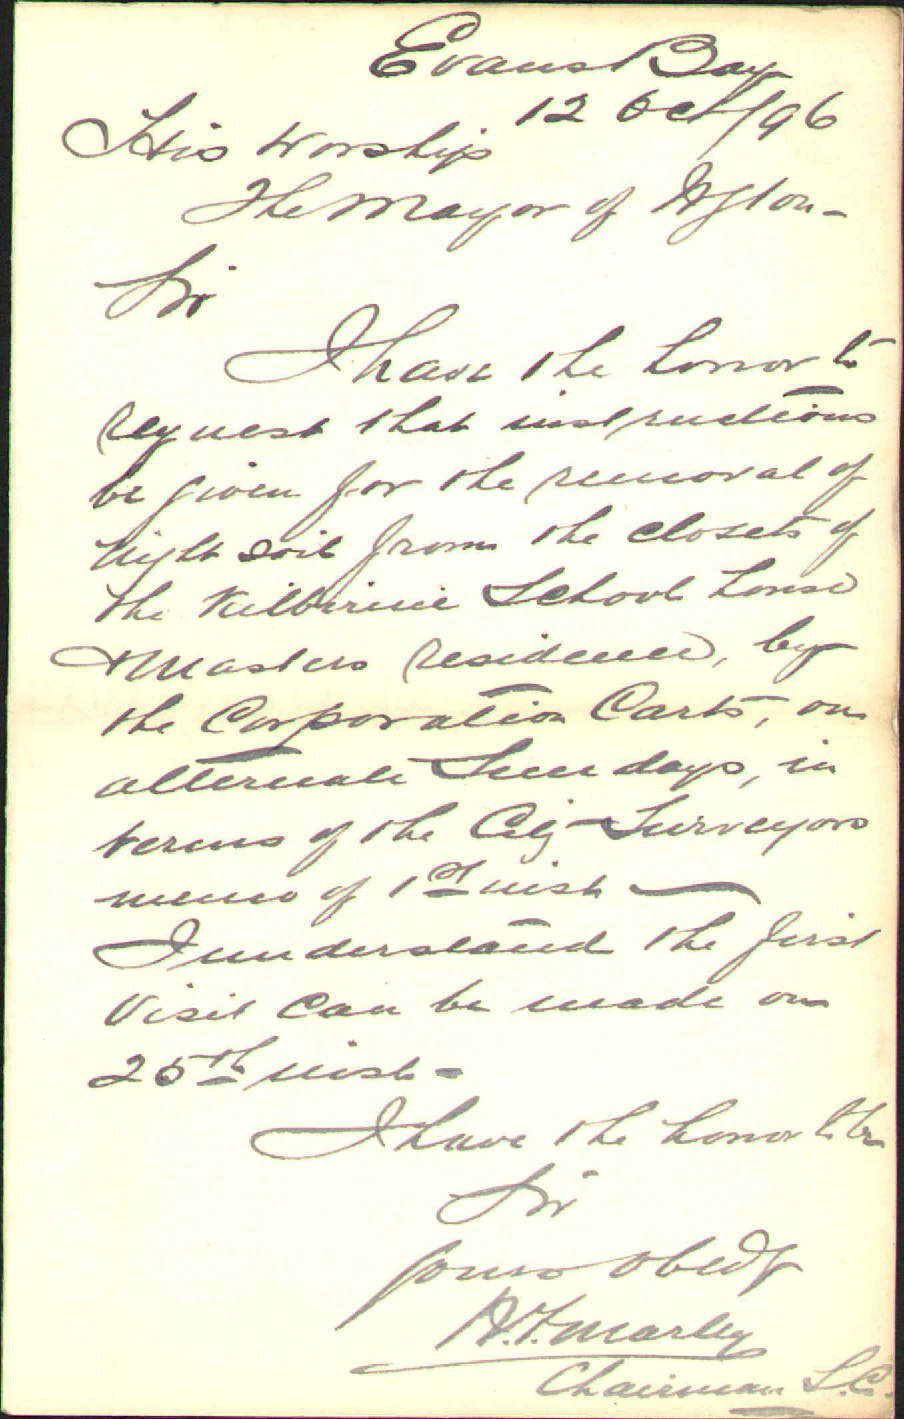 Evans Bay
12 Oct/96
His Worship
The Mayor of Wgton -
Sir
I have the honor to
request that instructions
be given for the removal of
night soil from the closets of
the Kilbirnie School house
& Masters residence, by
the Corporation Carts, on
alternate Sundays, in
terms of the City Surveyors
memo of 1st inst —
I understand the first
visit can be made on
25th inst -
I have the honor to be
Sir
Yours obedt
Marley
Chairman S.C.